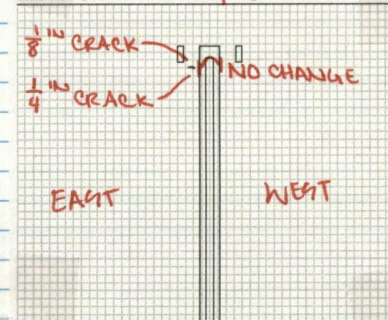 1/8 IN CRACK
NO CHANGE
1/4 IN CRACK
EAST
WEST